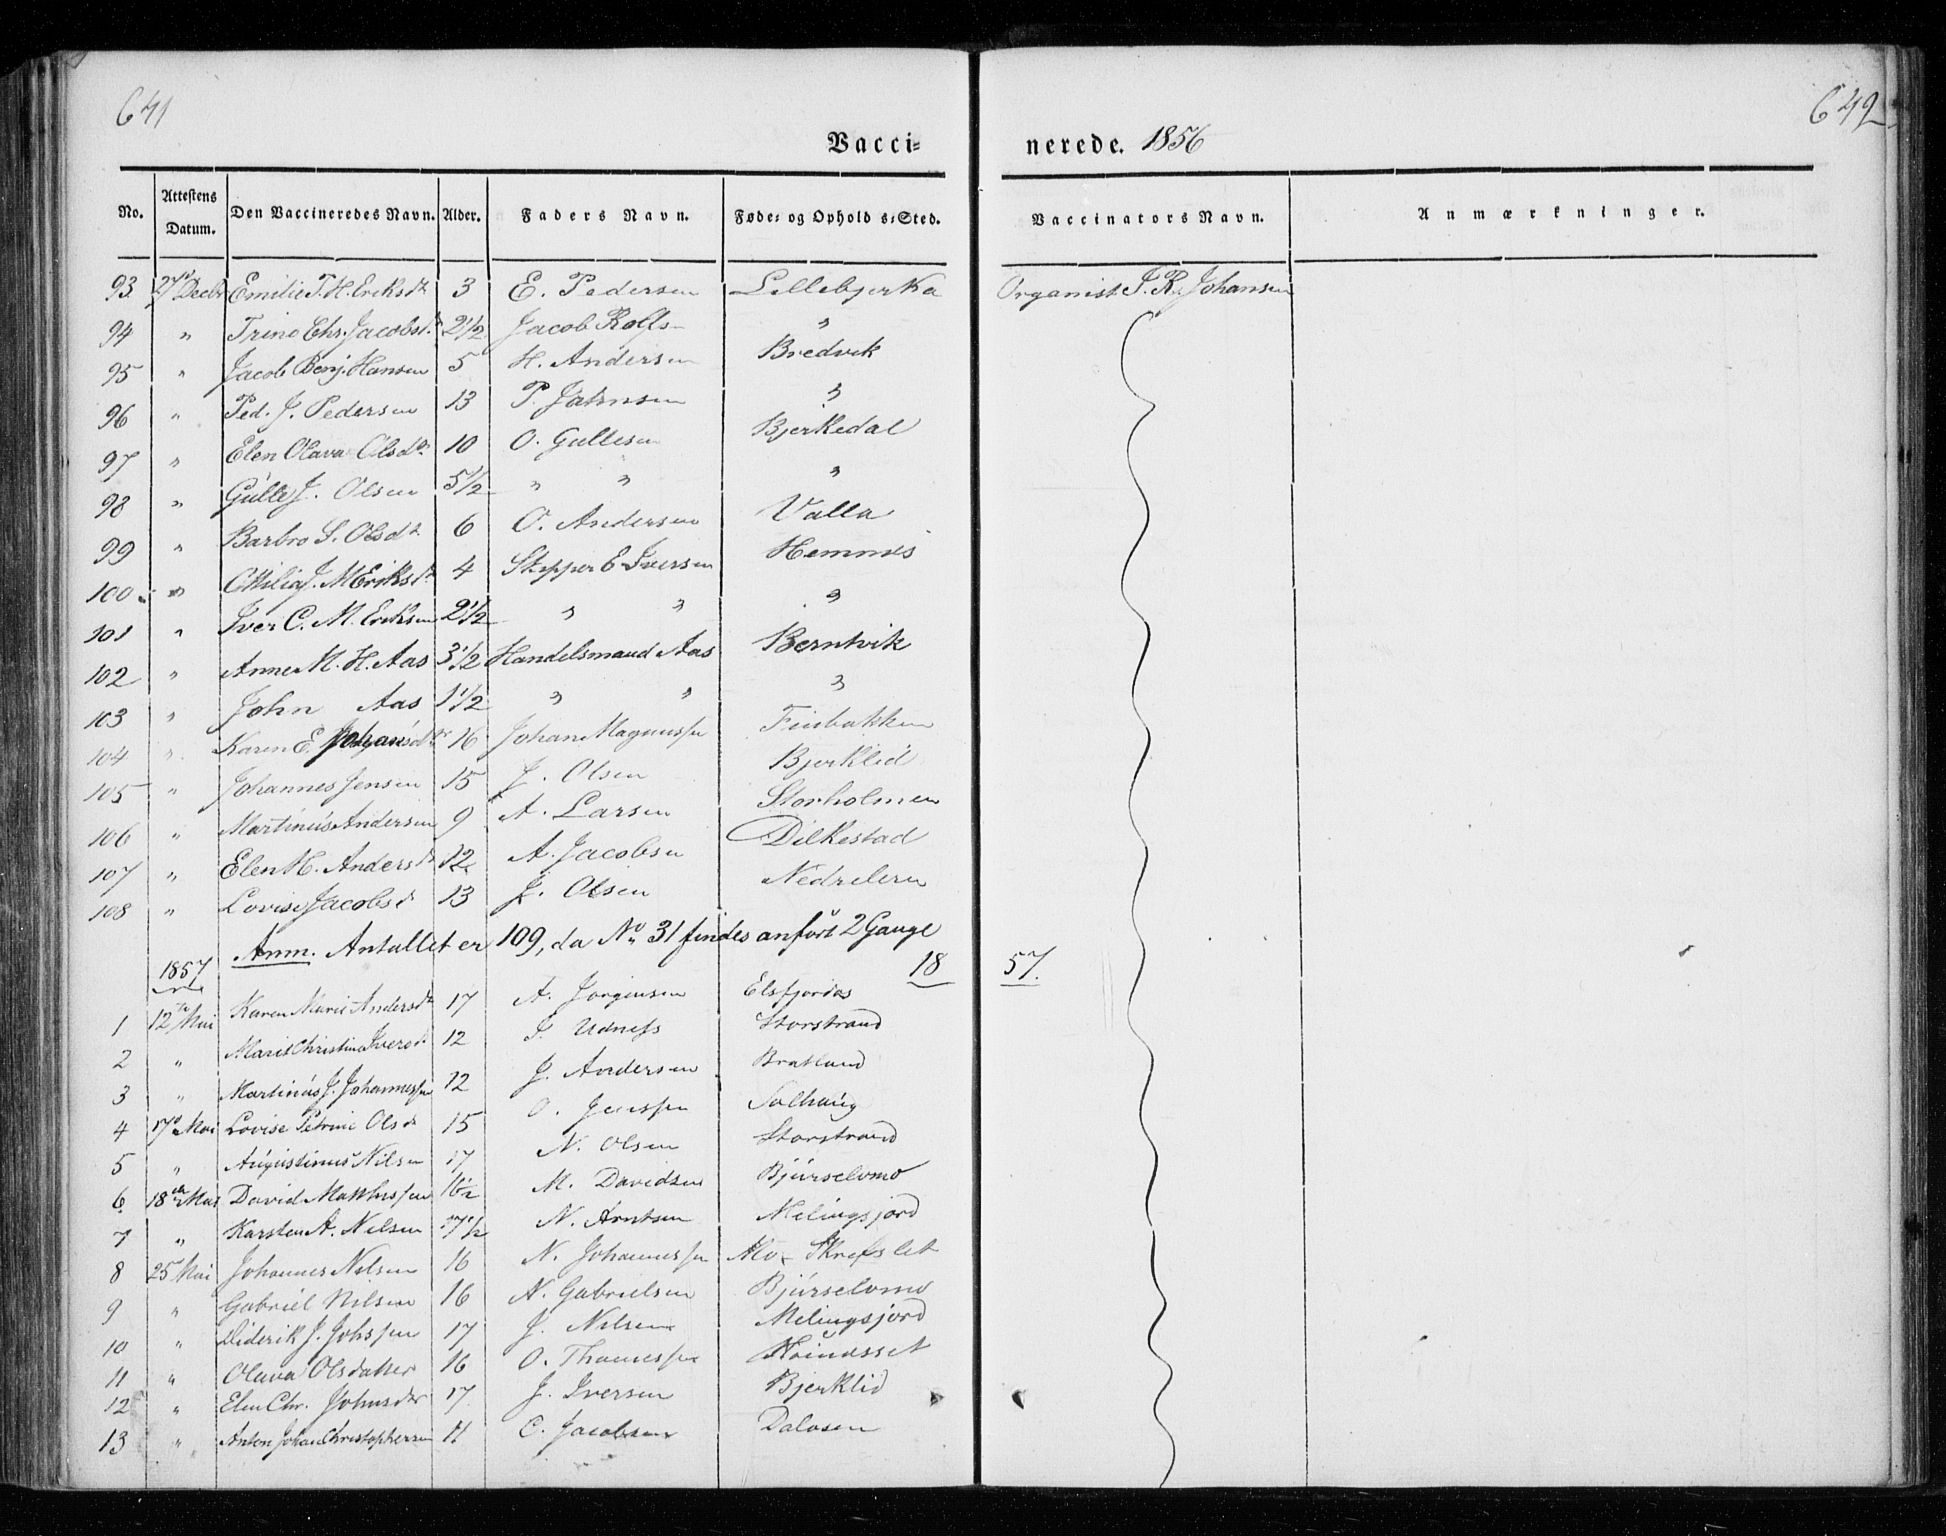 641
642
Vacci-
nerede. 1856
No. Attestens Datum. Den Vaccineredes Navn. Alder. Faders Navn. Føde- og Ophold s-Sted. Vaccinators Navn. Anmærkninger.
93 27d Decbr Emilie T. H. Eriksdr 3 E. Pedersen Lillebjerka Organist J. R. Johansen
94 " Trine Chr. Jacobsdr 2 1/2 Jacob Rolfs "
95 " Jacob Benj. Hansen 5 H. Andersen Bredvik
96 " Ped. J. Pedersen 13 P. Jahnsen "
97 " Elen Olava Olsdr 10 O. Gullesen Bjerkedal
98 " Gulle J. Olsen 5 1/2 " " "
99 " Barbro S. Olsdr 6 O. Andersen Valla
100 " Ottilia J. M Eriksdr 4 Skipper E Iversen Hemnæs
101 " Iver C. M. Eriksen 2 1/2 " " "
102 " Anne M. H. Aas 3 1/2 Handelsmand Aas Berntvik
103 " John Aas 1 1/2 " " "
104 " Karen E. Johansdr 16 Johan Magnussen Finbakken
105 " Johannes Jensen 15 J. Olsen Bjerklid
106 " Martinus Andersen 9 A. Larsen Storholmen
107 " Elen H. Andersdr 12 A. Jacobsen Dilkestad
108 " Lovise Jacobsd 13 J. Olsen Nedreleren
Anm. Antallet er 109, da No 31 findes anført 2 Gange
1857
18 57.
1 12te Mai Karen Marie Andersdr 17 A. Jørgensen Elsfjordos
2 " Marit Christine Iversdr 12 I. Udness Storstrand
3 " Martinus J. Johannessen 12 J. Andersen Bratland
4 17d Mai Lovise Petrine Olsdr 15 O. Jenssen Solhaug
5 " Augustinus Nilsen 17 N. Olsen Storstrand
6 18de Mai David Mathissen 16 1/2 M. Davidsen Bjurselvmo
7 " Karsten A. Nilsen 17 1/2 N. Arntsen Melingsjord
8 25 Mai Johannes Nilsen 16 N. Johannessen Mo
9 " Gabriel Nilsen 16 N. Gabrielsen Bjurselvmo
10 " Diderik J. Johssen 17 J. Nilsen Melingsjord
11 " Olava Olsdatter 16 O. Thomessen
12 " Elen Chr. Johnsdtr 17 J. Iversen Bjerklid
13 " Anton Johan Christophersen 11 C. Jacobsen Dalosen